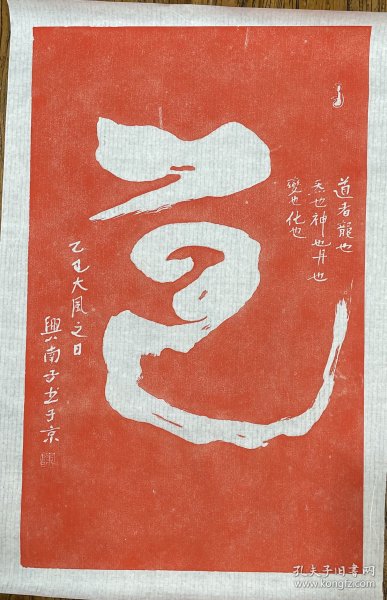 道者龍也
炁也神也丹也
變也化也
道
乙丑大風之日
興南子书于京
孔夫子旧书网
kongfz.com